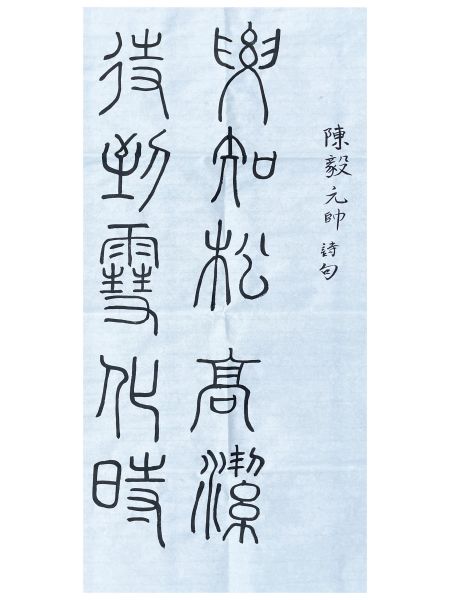 陳毅元帥 詩句
要知松高潔
待到雪化時